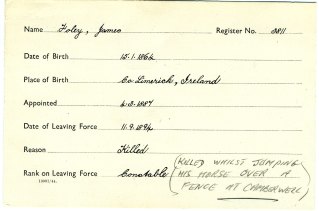 Name Foley, James Register No. 3811
Date of Birth 15.1.1864
Place of Birth Co. Limerick, Ireland
Appointed 4.5.1887
Date of Leaving Force 11.9.1894
Reason Killed (KILLED WHILST JUMPING
HIS HORSE OVER A
Rank on Leaving Force Constable FENCE AT CAMBERWELL)